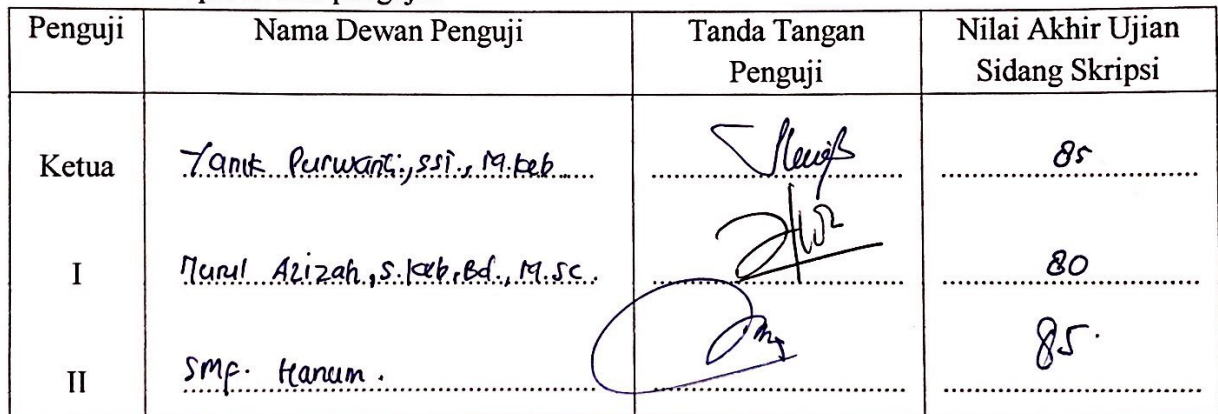 Penguji Nama Dewan Penguji Tanda Tangan Penguji Nilai Akhir Ujian Sidang Skripsi
Ketua Yanik Purwanti, SSi., M.keb 85
I Nurul Azizah, S.keb, Bd., M.Sc. 80
II SMF. Hanum. 85.